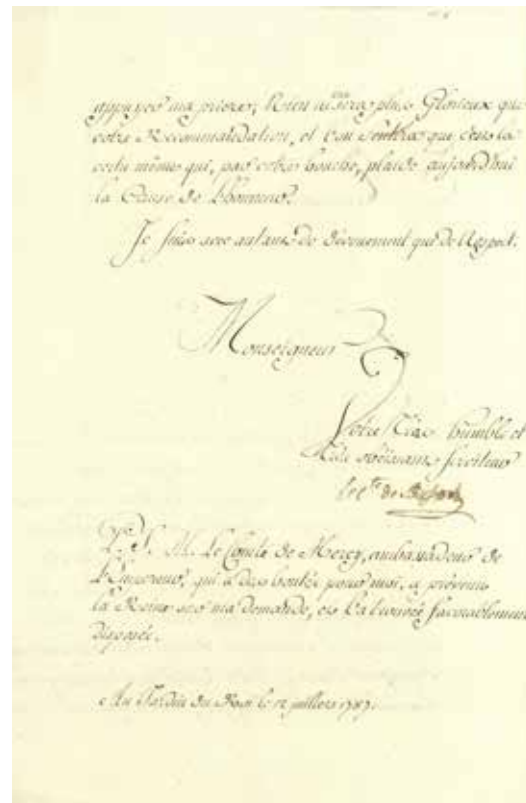 appuyer ma priere; Rien ne sera plus Glorieux que
votre Recommandation, et l'on sentira que c'est la
vertu même qui, par votre bouche, plaide aujourd'hui
la Cause de L'honneur.
Je suis avec autant de dévouement que de Respect.
Monseigneur
Votre très humble et
très obéissant serviteur
le cte de Buffon
P. S. M. Le Comte de Mercy, ambassadeur de
L'Empereur, qui a des bontés pour moi, a prévenu
la Reine sur ma demande, et l'a trouvée favorablement
disposée.
Au Jardin du Roi le 12 juillet 1787.